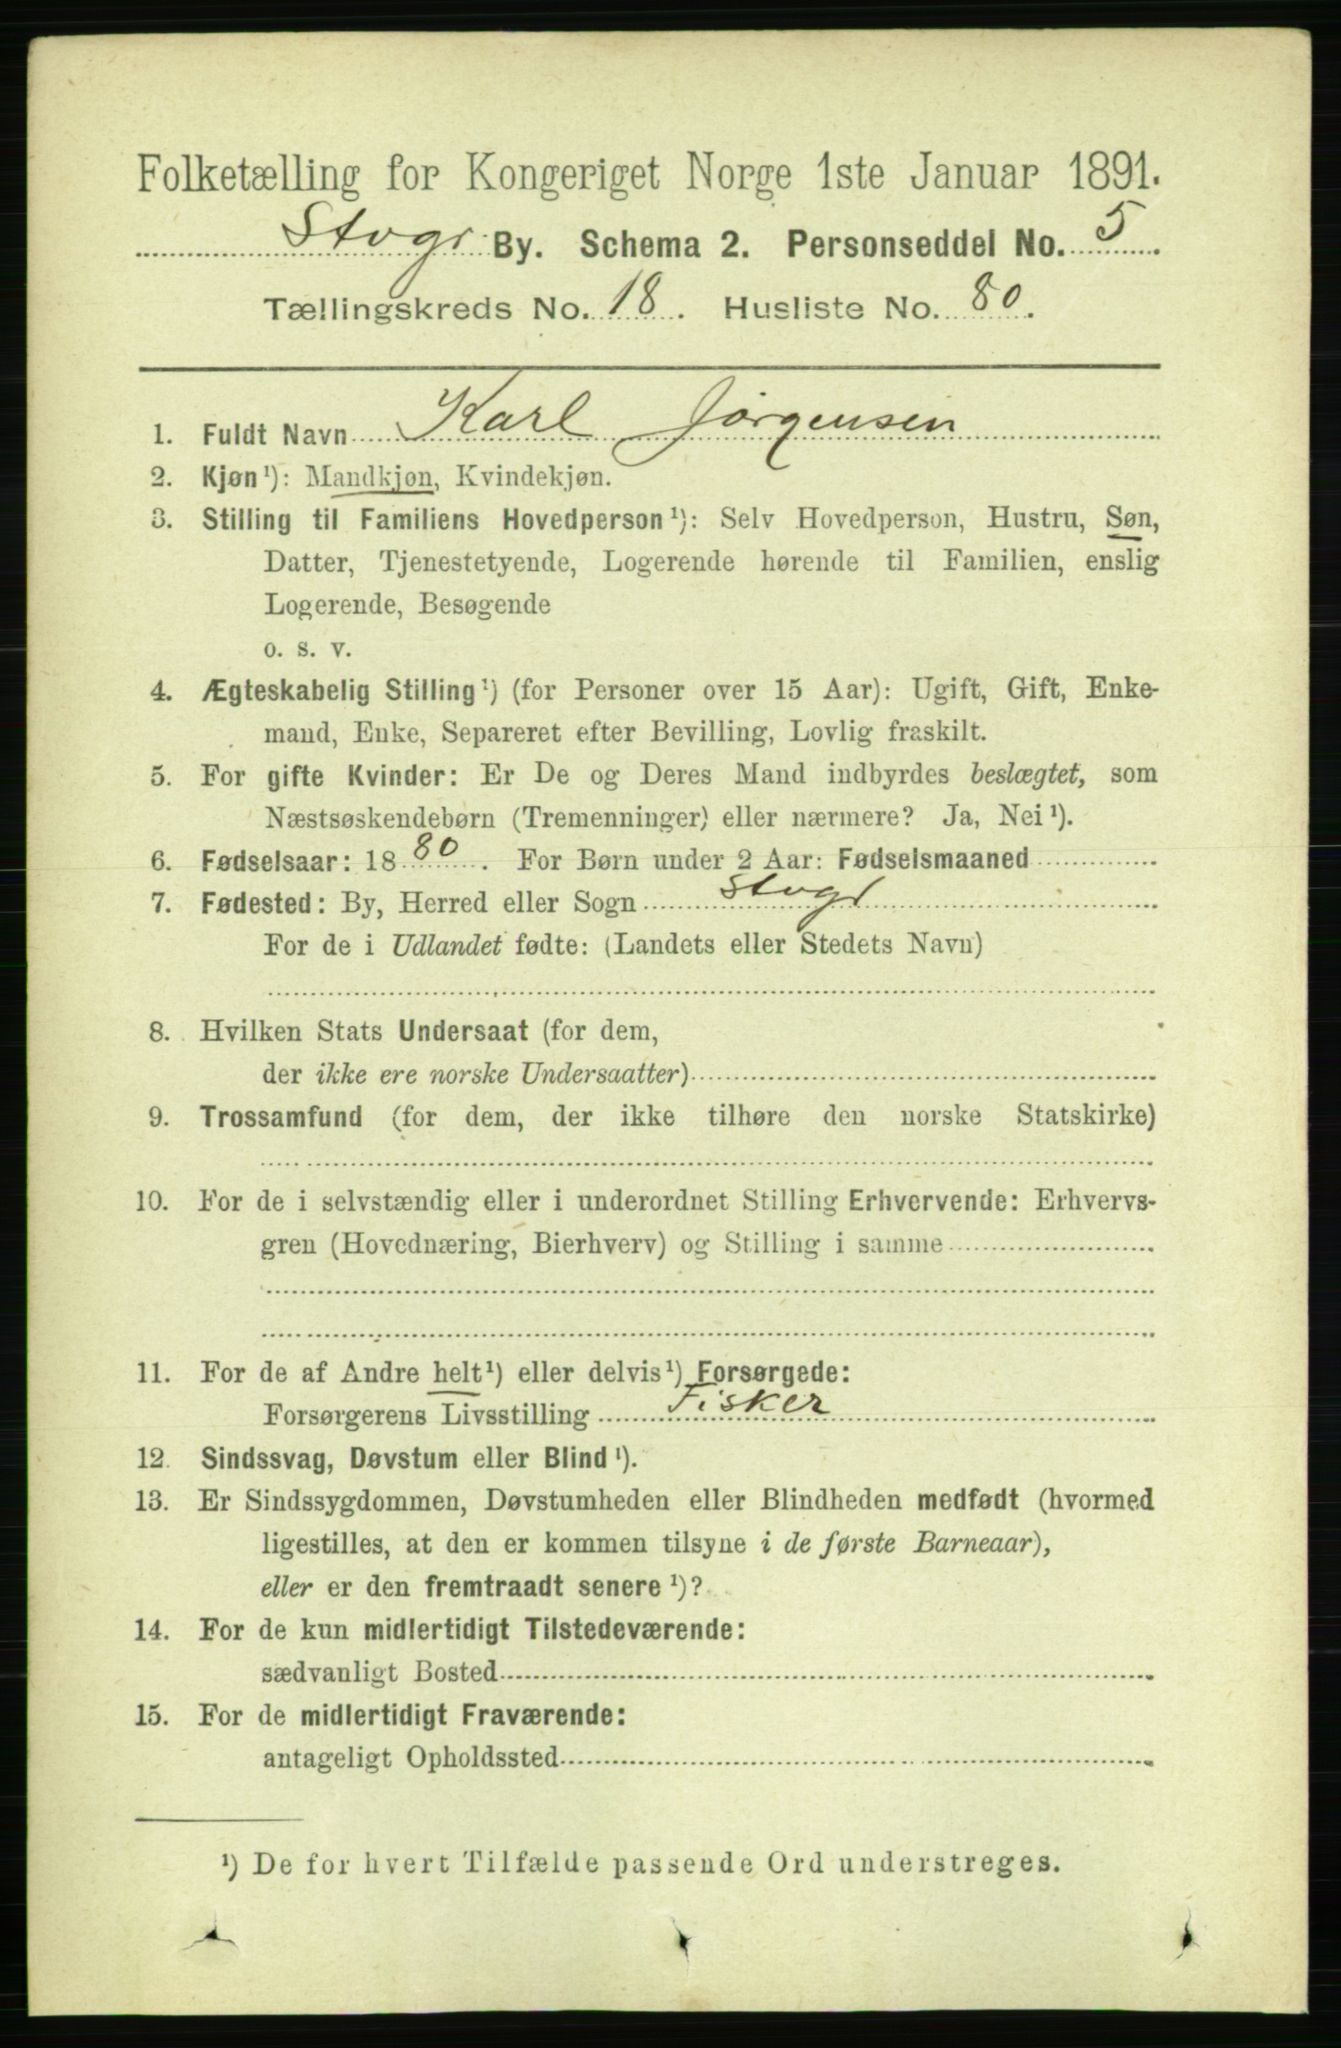 Folketælling for Kongeriget Norge 1ste Januar 1891.
Stvgr By. Schema 2. Personseddel No. 5.
Tællingskreds No. 18. Husliste No. 80.
1. Fuldt Navn Karl Jørgensen
2. Kjøn¹): Mandkjøn, Kvindekjøn.
3. Stilling til Familiens Hovedperson¹): Selv Hovedperson, Hustru, Søn,
Datter, Tjenestetyende, Logerende hørende til Familien, enslig
Logerende, Besøgende
o. s. v.
4. Ægteskabelig Stilling¹) (for Personer over 15 Aar): Ugift, Gift, Enke-
mand, Enke, Separeret efter Bevilling, Lovlig fraskilt.
5. For gifte Kvinder: Er De og Deres Mand indbyrdes beslægtet, som
Næstsøskendebørn (Tremenninger) eller nærmere? Ja, Nei¹).
6. Fødselsaar: 1880. For Børn under 2 Aar: Fødselsmaaned
7. Fødested: By, Herred eller Sogn Stvgr
For de i Udlandet fødte: (Landets eller Stedets Navn)
8. Hvilken Stats Undersaat (for dem,
der ikke ere norske Undersaatter)
9. Trossamfund (for dem, der ikke tilhøre den norske Statskirke)
10. For de i selvstændig eller i underordnet Stilling Erhvervende: Erhvervs-
gren (Hovednæring, Bierhverv) og Stilling i samme
11. For de af Andre helt¹) eller delvis¹) Forsørgede:
Forsørgerens Livsstilling Fisker
12. Sindssvag, Døvstum eller Blind¹).
13. Er Sindssygdommen, Døvstumheden eller Blindheden medfødt (hvormed
ligestilles, at den er kommen tilsyne i de første Barneaar),
eller er den fremtraadt senere¹)?
14. For de kun midlertidigt Tilstedeværende:
sædvanligt Bosted
15. For de midlertidigt Fraværende:
antageligt Opholdssted
¹) De for hvert Tilfælde passende Ord understreges.